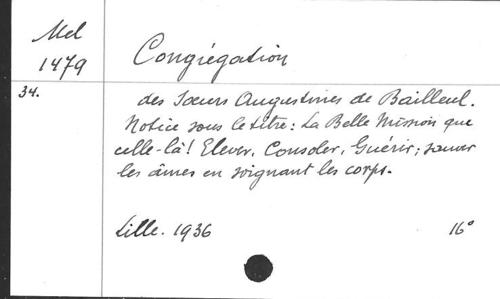 Mel
1479
Congrégation
34.
des Sœurs Augustines de Bailleul.
Notice sous le titre: La Belle Mission que
celle-là! Elever, Consoler, Guérir; sauver
les âmes en soignant les corps.
Lille. 1936
16°